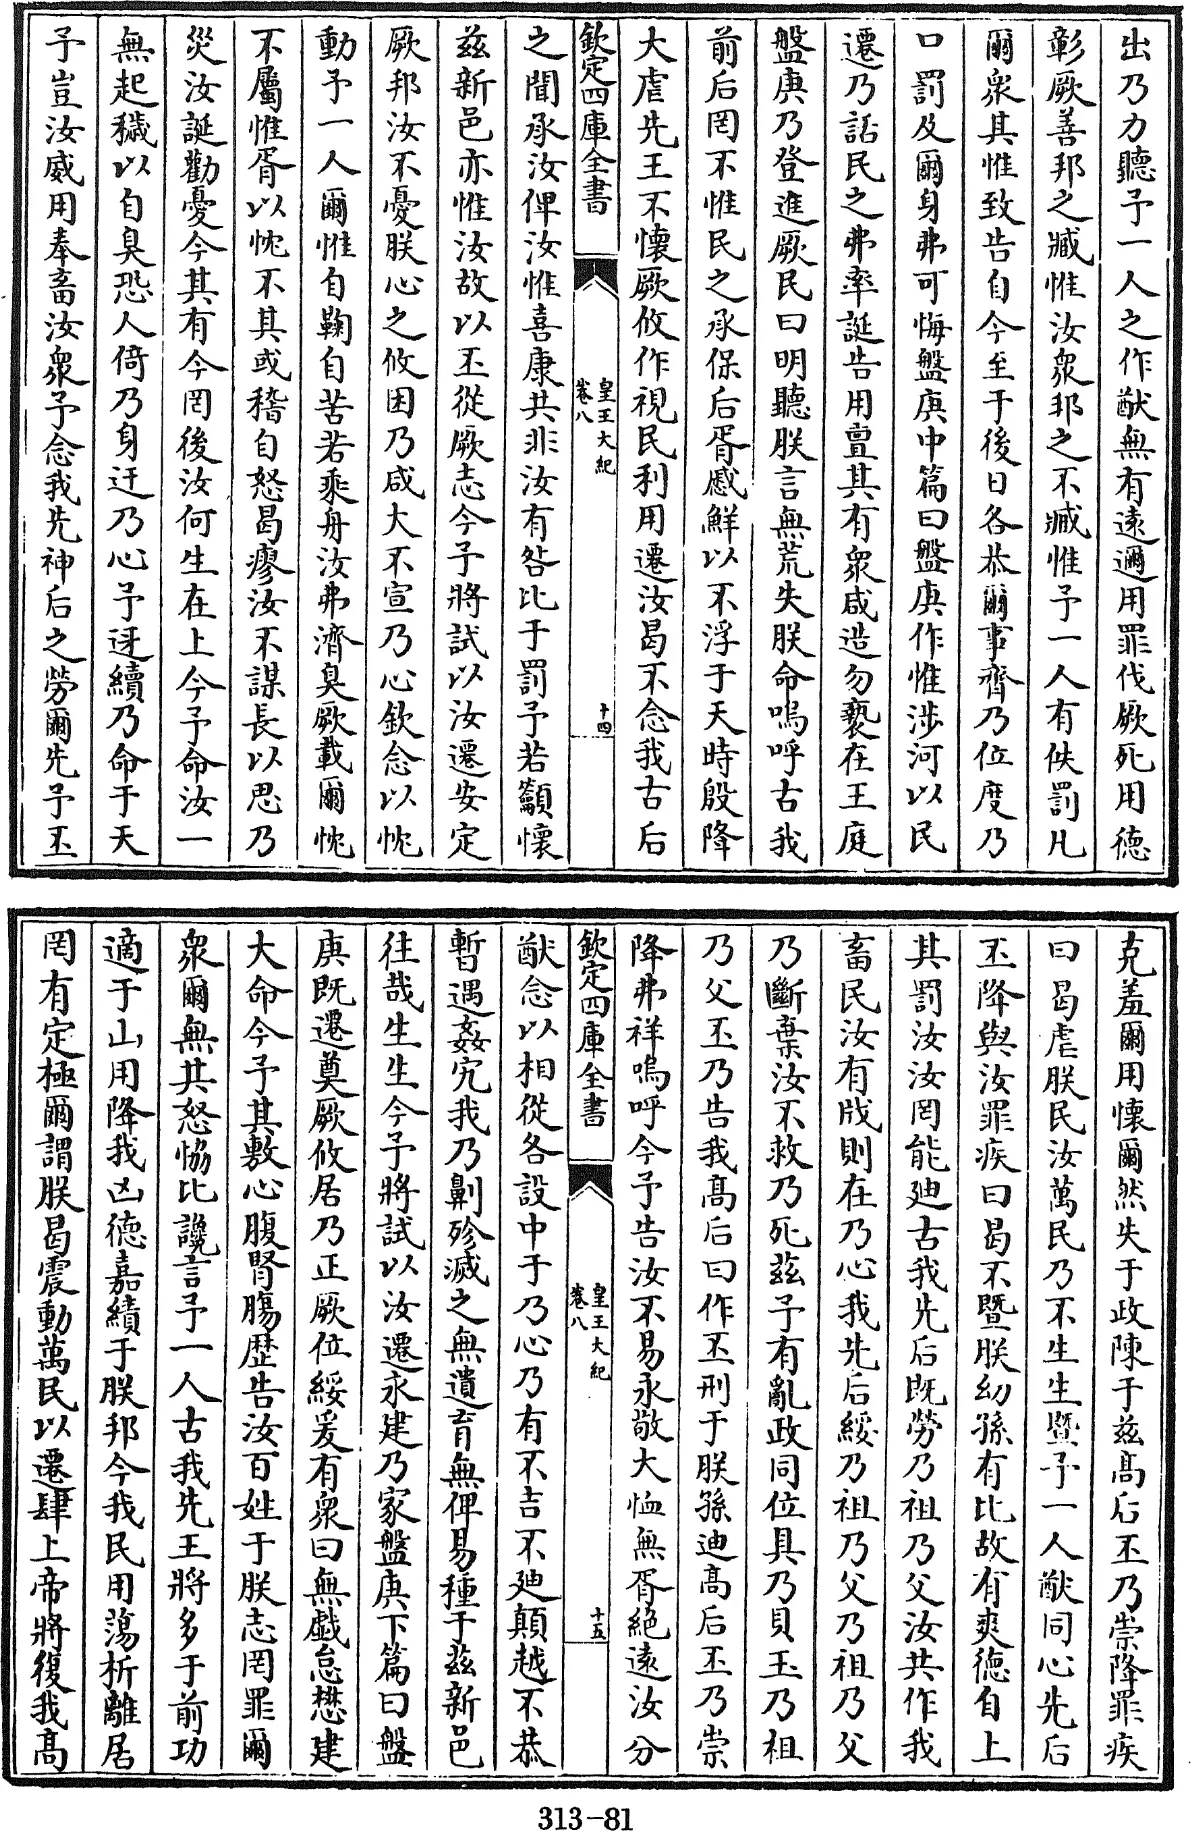 出乃力聽予一人之作猷無有遠邇用罪伐厥死用德
彰厥善邦之臧惟汝衆邦之不臧惟予一人有佚罰凡
爾衆其惟致告自今至于後日各恭爾事齊乃位度乃
口罰及爾身弗可悔盤庚中篇曰盤庚作惟涉河以民
遷乃話民之弗率誕告用亶其有衆咸造勿褻在王庭
盤庚乃登進厥民曰明聽朕言無荒失朕命嗚呼古我
前后罔不惟民之承保后胥慼鮮以不浮于天時殷降
大虐先王不懷厥攸作視民利用遷汝曷不念我古后
欽定四庫全書
皇王大紀
卷八
十四
之聞承汝俾汝惟喜康共非汝有咎比于罰予若籲懷
兹新邑亦惟汝故以丕從厥志今予將試以汝遷安定
厥邦汝不憂朕心之攸困乃咸大不宣乃心欽念以忱
動予一人爾惟自鞠自苦若乘舟汝弗濟臭厥載爾忱
不屬惟胥以忱不其或稽自怒曷瘳汝不謀長以思乃
災汝誕勸憂今其有今罔後汝何生在上今予命汝一
無起穢以自臭恐人倚乃身迂乃心予迓續乃命于天
予豈汝威用奉畜汝衆予念我先神后之勞爾先予丕
克羞爾用懷爾然失于政陳于兹高后丕乃崇降罪疾
曰曷虐朕民汝萬民乃不生生暨予一人猷同心先后
丕降與汝罪疾曰曷不暨朕幼孫有比故有爽德自上
其罰汝汝罔能廸古我先后既勞乃祖乃父汝共作我
畜民汝有戕則在乃心我先后綏乃祖乃父乃祖乃父
乃斷棄汝不救乃死兹予有亂政同位具乃貝玉乃祖
乃父丕乃告我高后曰作丕刑于朕孫迪高后丕乃崇
降弗祥嗚呼今予告汝不易永敬大恤無胥絶遠汝分
欽定四庫全書
皇王大紀
卷八
十五
猷念以相從各設中于乃心乃有不吉不廸顛越不恭
暫遇姦宄我乃劓殄滅之無遺育無俾易種于兹新邑
往哉生生今予將試以汝遷永建乃家盤庚下篇曰盤
庚既遷奠厥攸居乃正厥位綏爰有衆曰無戲怠懋建
大命今予其敷心腹腎腸歴告汝百姓于朕志罔罪爾
衆爾無共怒恊比讒言予一人古我先王將多于前功
適于山用降我凶德嘉績于朕邦今我民用蕩析離居
罔有定極爾謂朕曷震動萬民以遷肆上帝將復我高
313-81